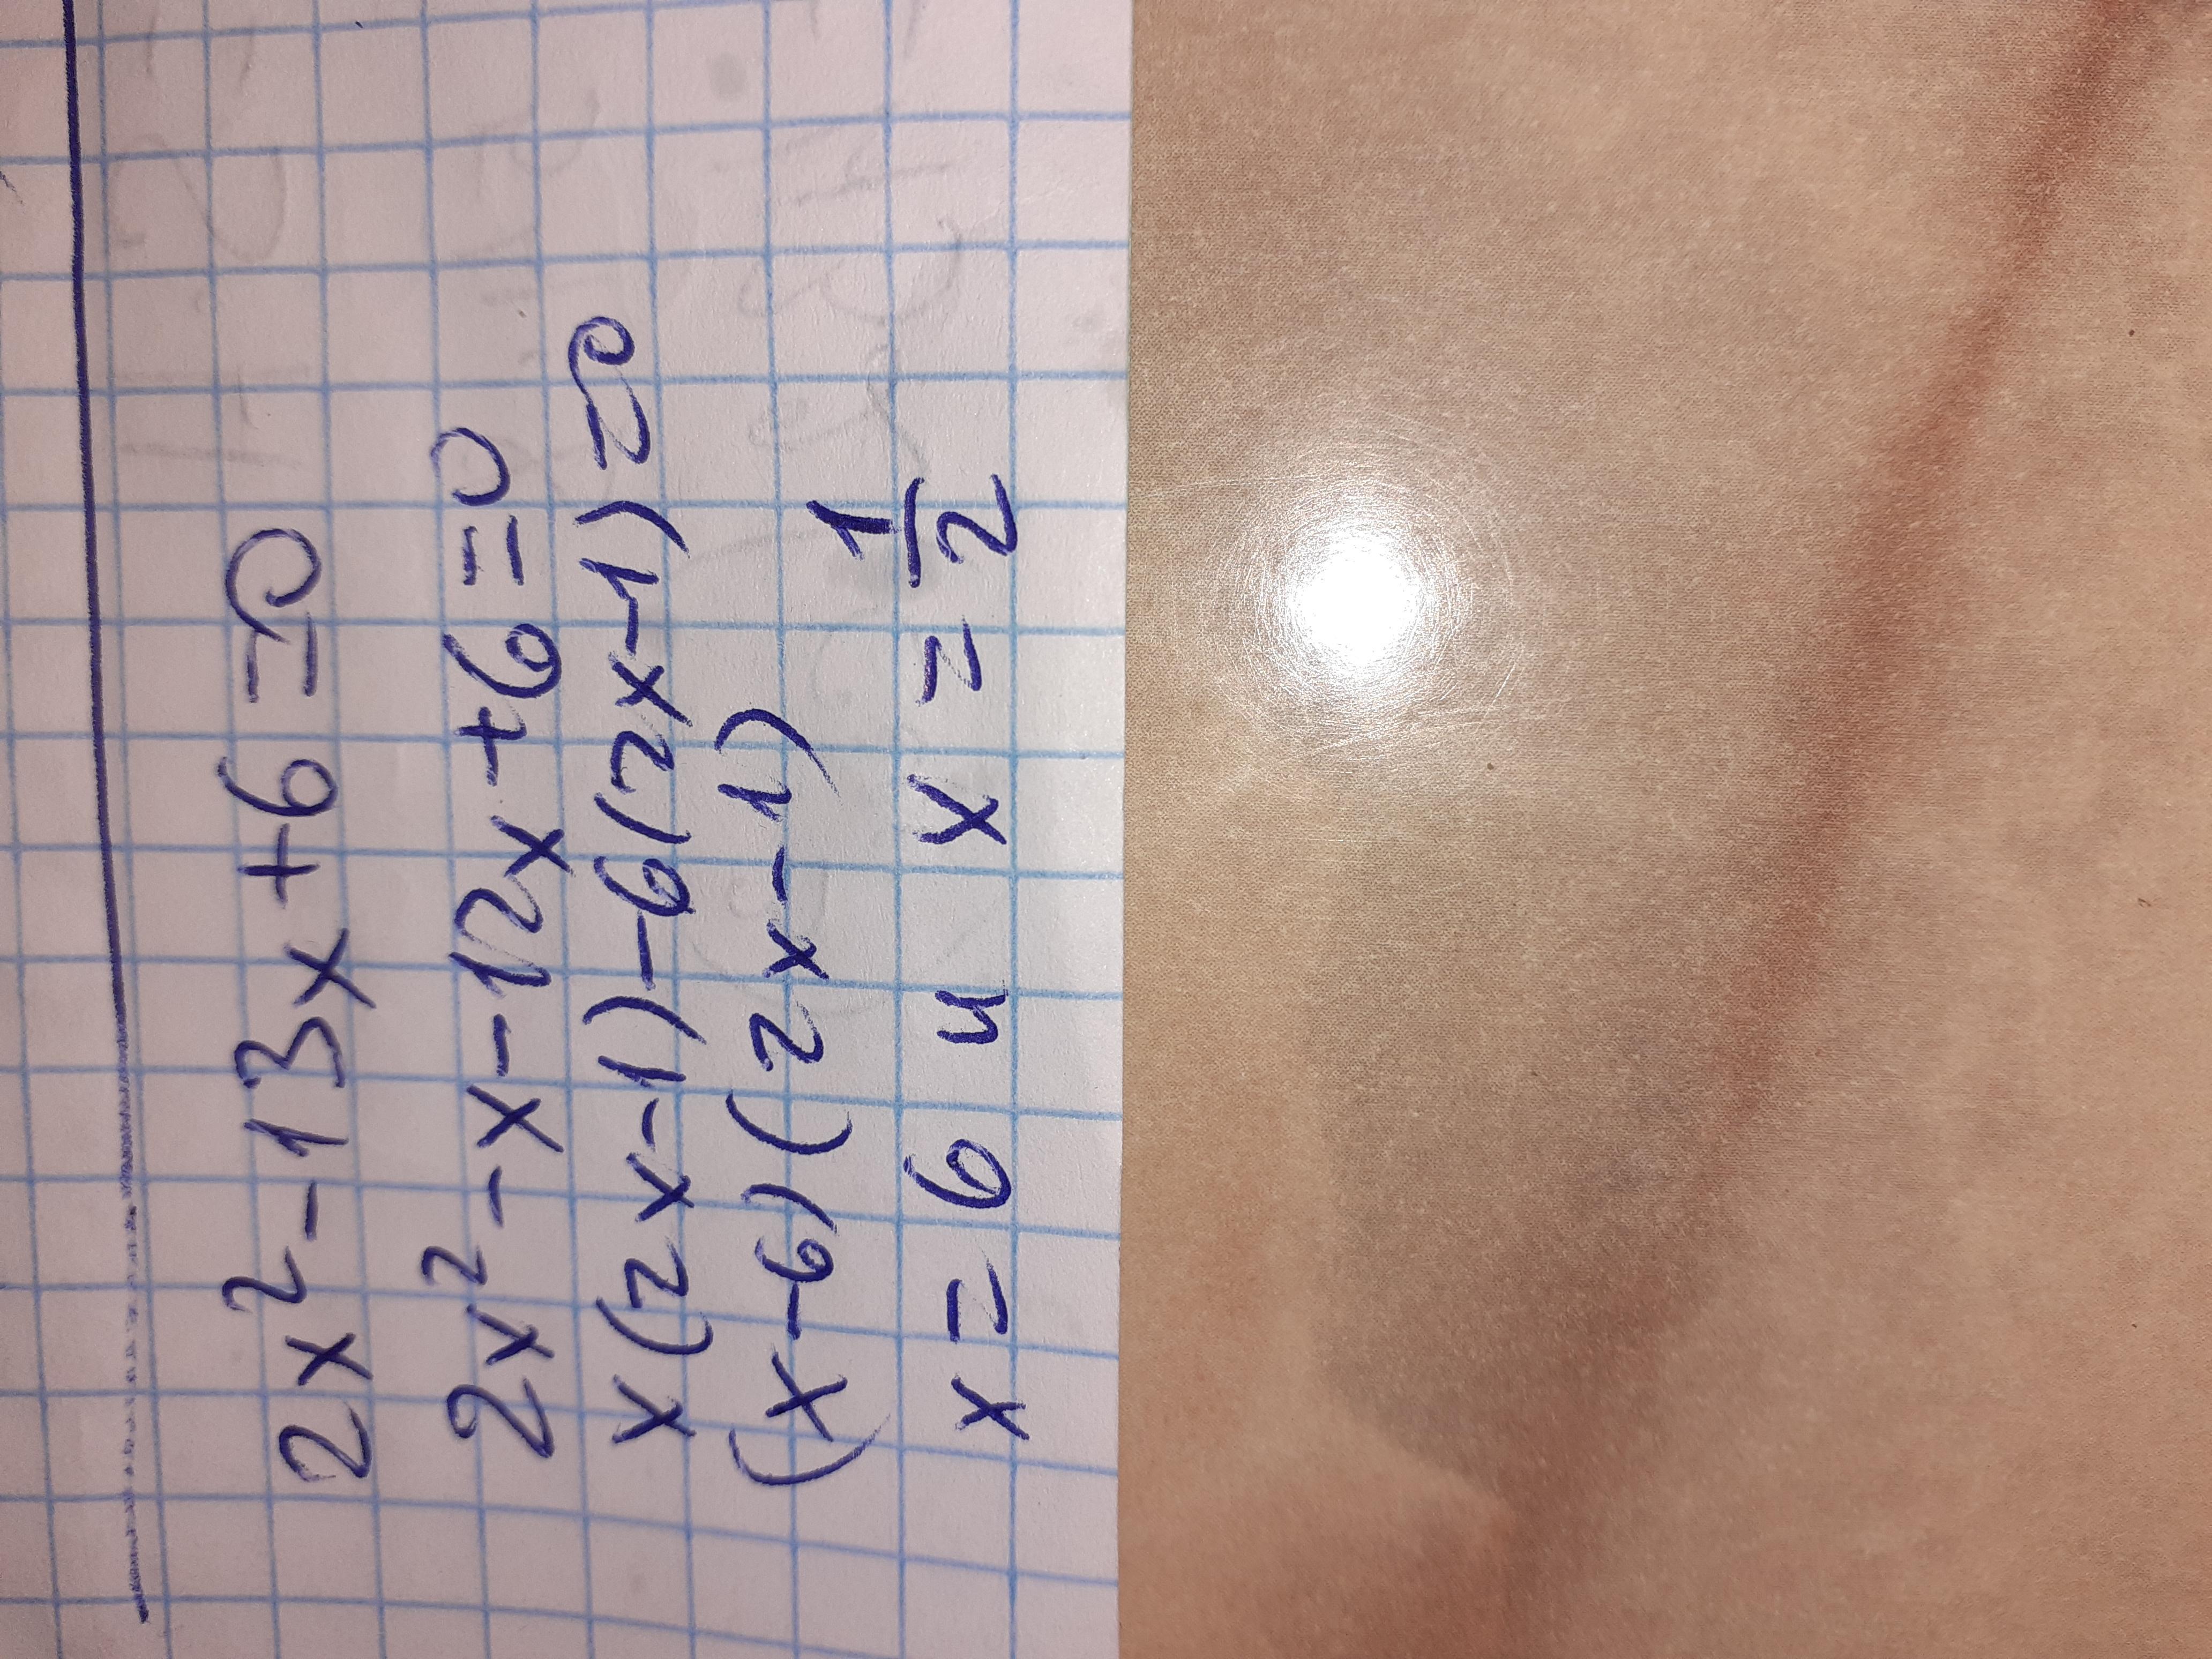 2x² - 13x + 6 = 0
2x² - x - 12x + 6 = 0
x(2x - 1) - 6(2x - 1) = 0
(x - 6)(2x - 1)
x = 6 и x = 1/2